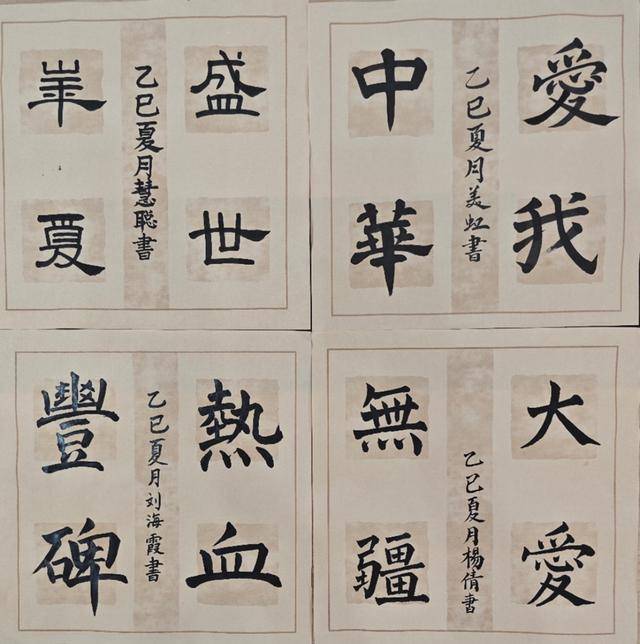 盛世
崋夏
乙巳夏月慧聪書
愛我
中華
乙巳夏月美虹書
熱血
豐碑
乙巳夏月刘海霞書
大愛
無疆
乙巳夏月楊倩書